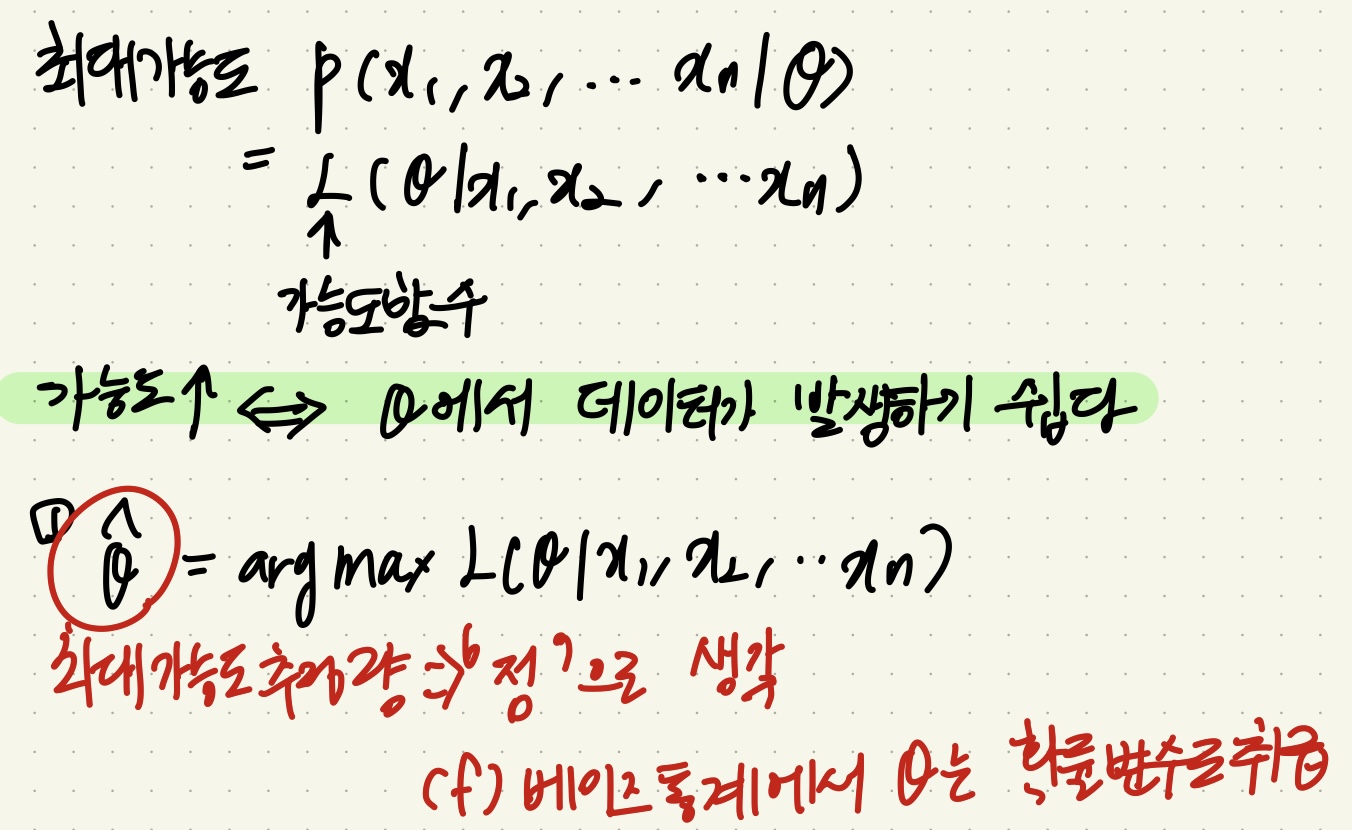 최대가능도 p(x₁, x₂, ... xₙ|θ)
= L(θ|x₁, x₂, ...xₙ)
↑
가능도함수
가능도↑ ⇔ θ에서 데이터가 발생하기 쉽다
① θ̂ = arg max L(θ|x₁, x₂, ..xₙ)
최대가능도추정량 => '점'으로 생각
(cf) 베이즈통계에서 θ는 확률변수로취급